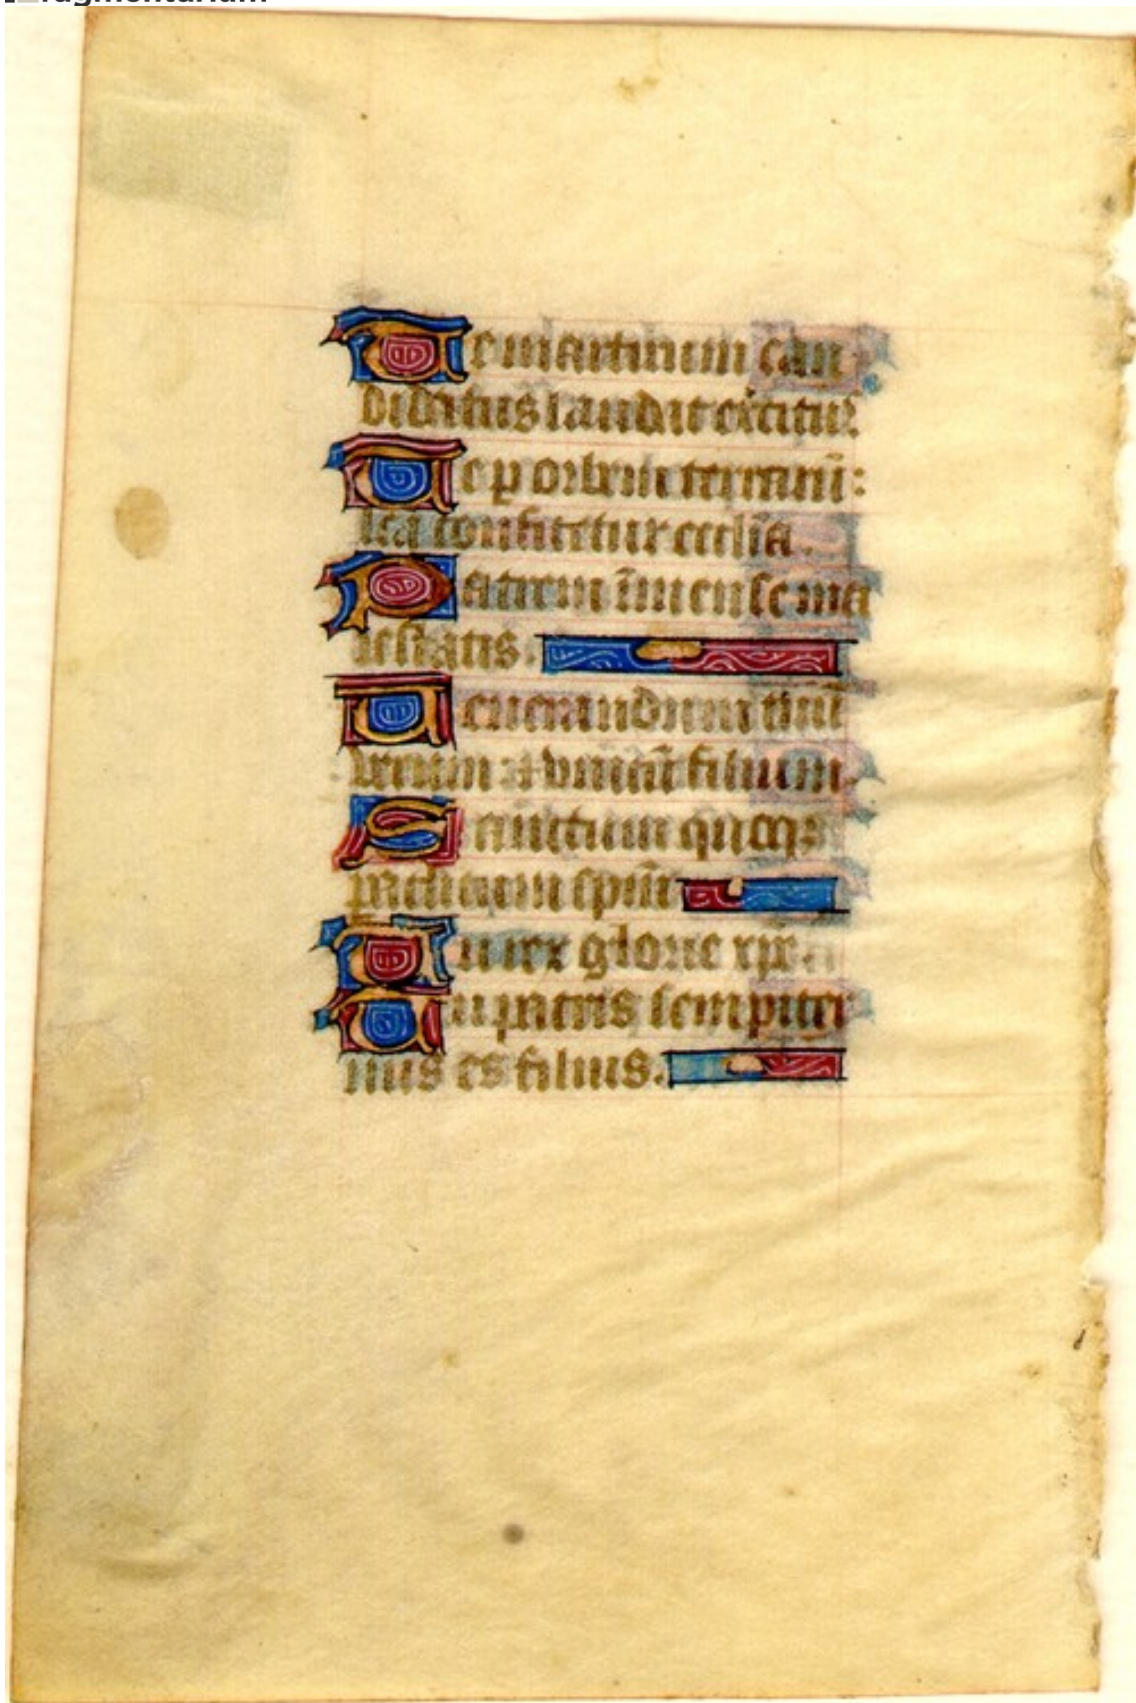 Te martirum can
didatus laudat exercitus.
Te p orbem terrarū:
sca confitetur ecclia.
Patrem īmense ma
iestatis.
Uenerandum tuū
verum et vnicū filium.
Sanctum quoq3
paclitum spm
Tu rex glorie xpe.
Tu patris sempiter
nus es filius.